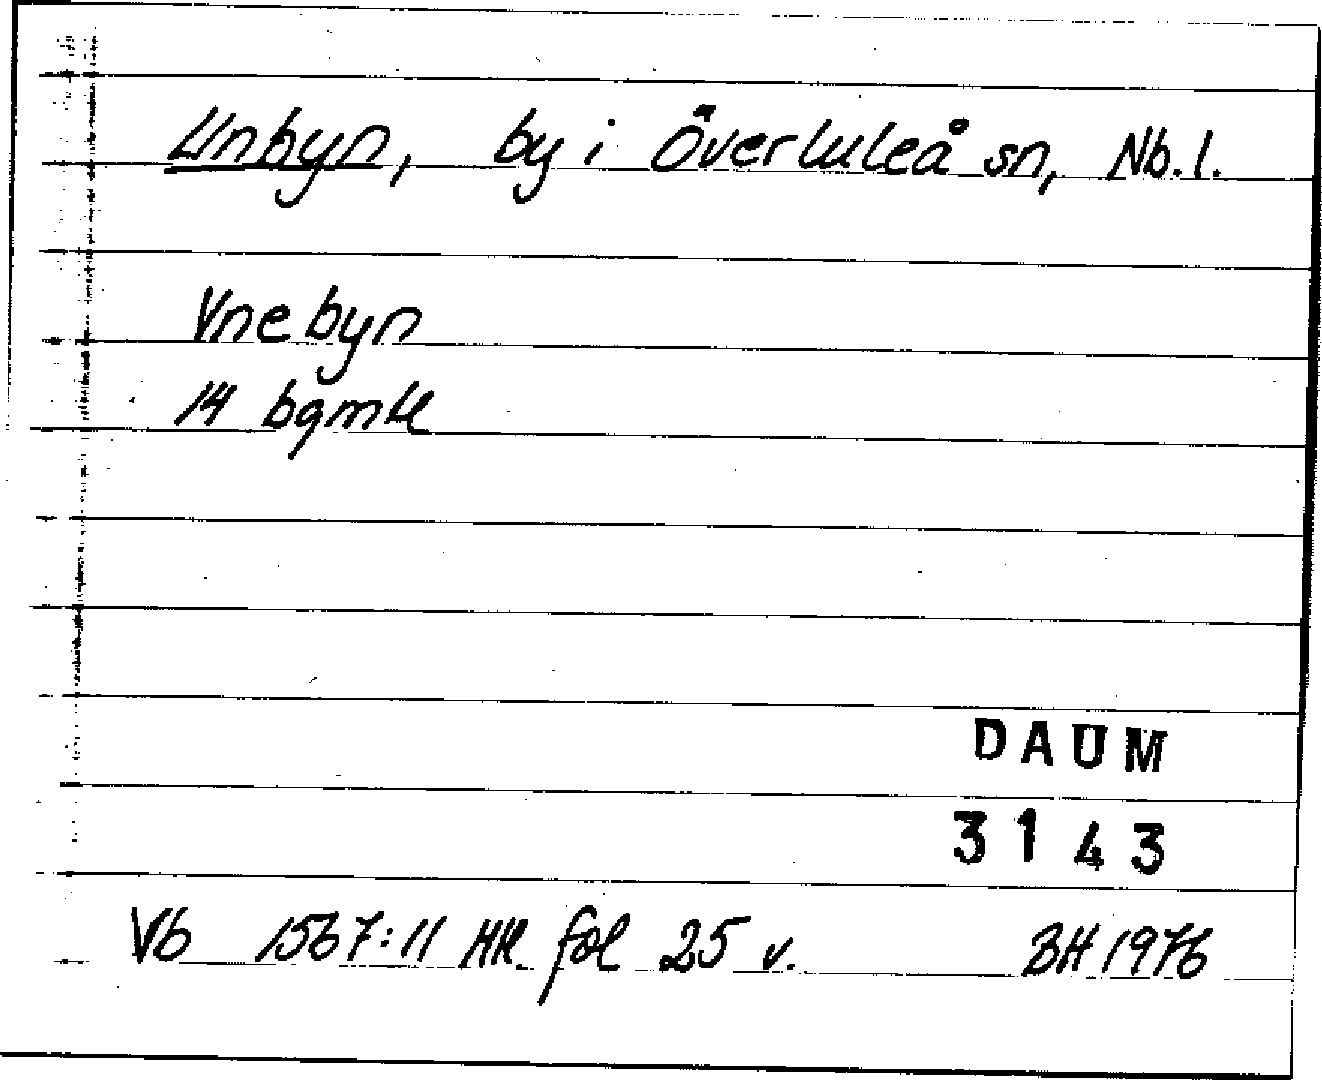 Unbyn, by i Överluleå sn, Nb. l.
Vnebyn
14 bgmtl
DAUM
3143
Vb 1567:11 HH fol 25 v. BH 1976